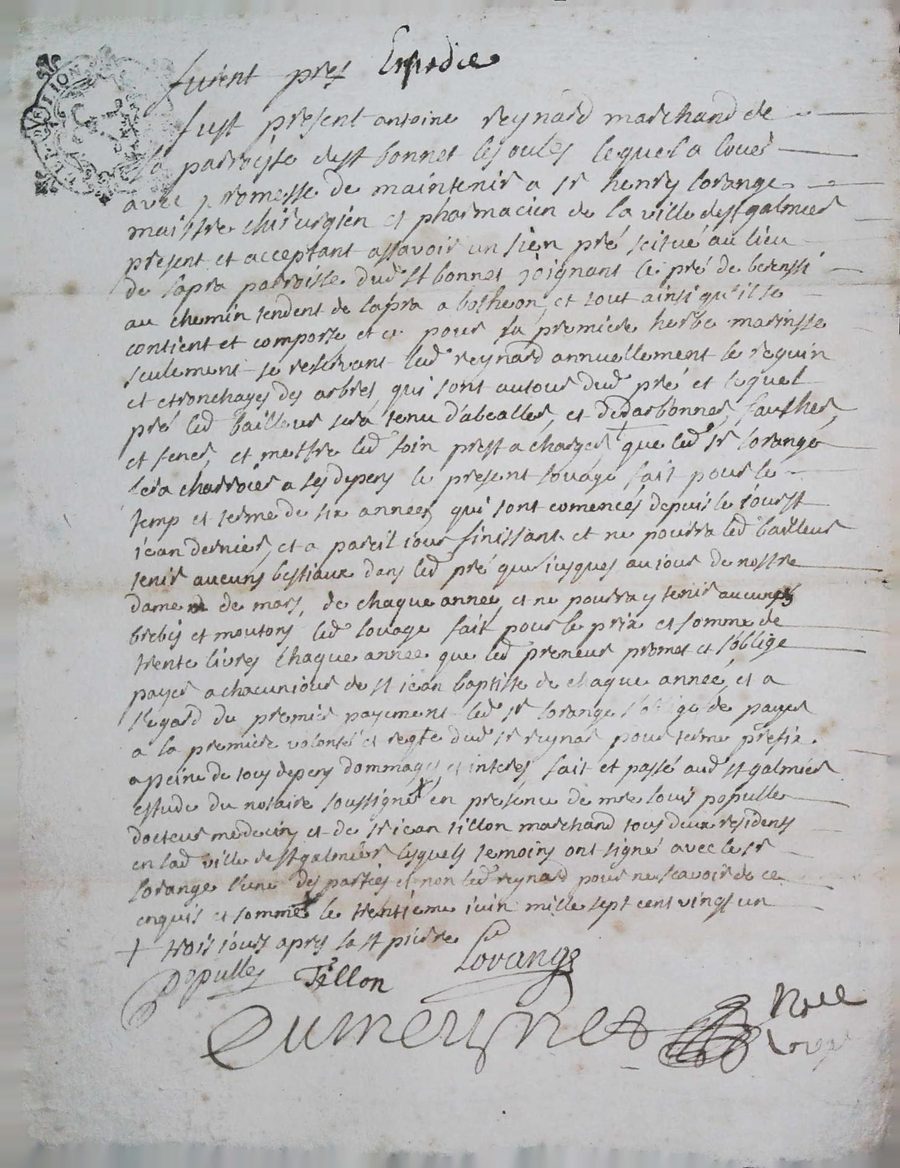 furent pret Expedie
fust present antoine reynard marchand de
la parroisse de st bonnet les oules lequel a loué
avec promesse de maintenir a sr henry lorange
maistre chirurgien et pharmacien de la ville de st galmier
present et acceptant assavoir un sien pré scitué au lieu
de lapra parroisse dud st bonnet joignant le pré de
au chemin tendent de lapra a botheon et tout ainsi qu'il se
contient et comporte et ce pour la premiere herbe
seulement se reservant led reynard annuellement le reguin
et etronchages des arbres qui sont autour dud pré et lequel
pré led bailleur sera tenu d'abealler, et dedarbonner, faucher,
et fener, et mettre led foin prest a charger + que led sr lorange
fera charroier a ses depens le present louage fait pour le
temp et terme de six années qui sont comencés depuis le jour st
jean dernier, et a pareil jour finissant et ne pourra led bailleur
tenir aucuns bestiaux dans led pré que jusques au jour de nostre
dame de mars, de chaque année et ne pourra y tenir aucunes
brebis et moutons led louage fait pour le prix et somme de
trente livres chaque année que led preneur promet et s'oblige
payer a chacun jour de st jean baptiste de chaque année et a
l'egard du premier payement led sr lorange s'oblige de payer
a la premiere volonté et regte dud sr reynard pour terme prefix
a peine de tous depens dommages et interes fait et passé aud st galmier
estude du notaire soussigné en presence de mre louis populle
docteur medecin et de sr jean tillon marchand tous deux residents
en lad ville de st galmier lesquels temoins ont signé avec le sr
lorange l'une des parties et non led reynard pour ne scavoir de ce
enquis et sommé le trentieme juin mille sept cent vingt un
+ trois jours apres la st pierre
Populle Tillon Lorange